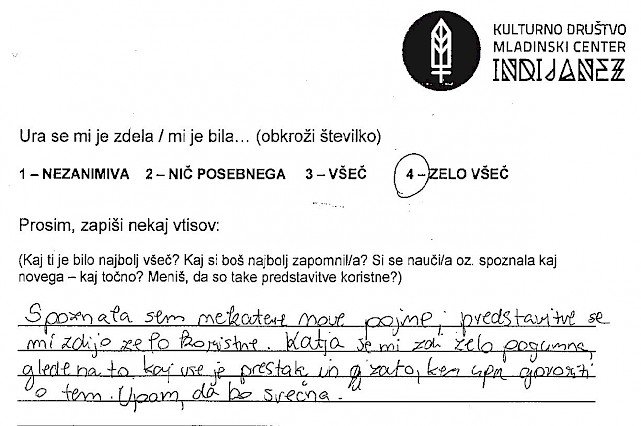 KULTURNO DRUŠTVO
MLADINSKI CENTER
INDIJANEZ
Ura se mi je zdela / mi je bila... (obkroži številko)
1 – NEZANIMIVA 2 – NIČ POSEBNEGA 3 – VŠEČ 4 – ZELO VŠEČ
Prosim, zapiši nekaj vtisov:
(Kaj ti je bilo najbolj všeč? Kaj si boš najbolj zapomnil/a? Si se nauči/a oz. spoznala kaj
novega – kaj točno? Meniš, da so take predstavitve koristne?)
Spoznala sem nekatere nove pojme, predstavitve se
mi zdijo zelo koristne. Katja se mi zdi zelo pogumna,
glede na to kaj vse je prestala in zato, ker upa govoriti
o tem. Upam, da bo srečna.